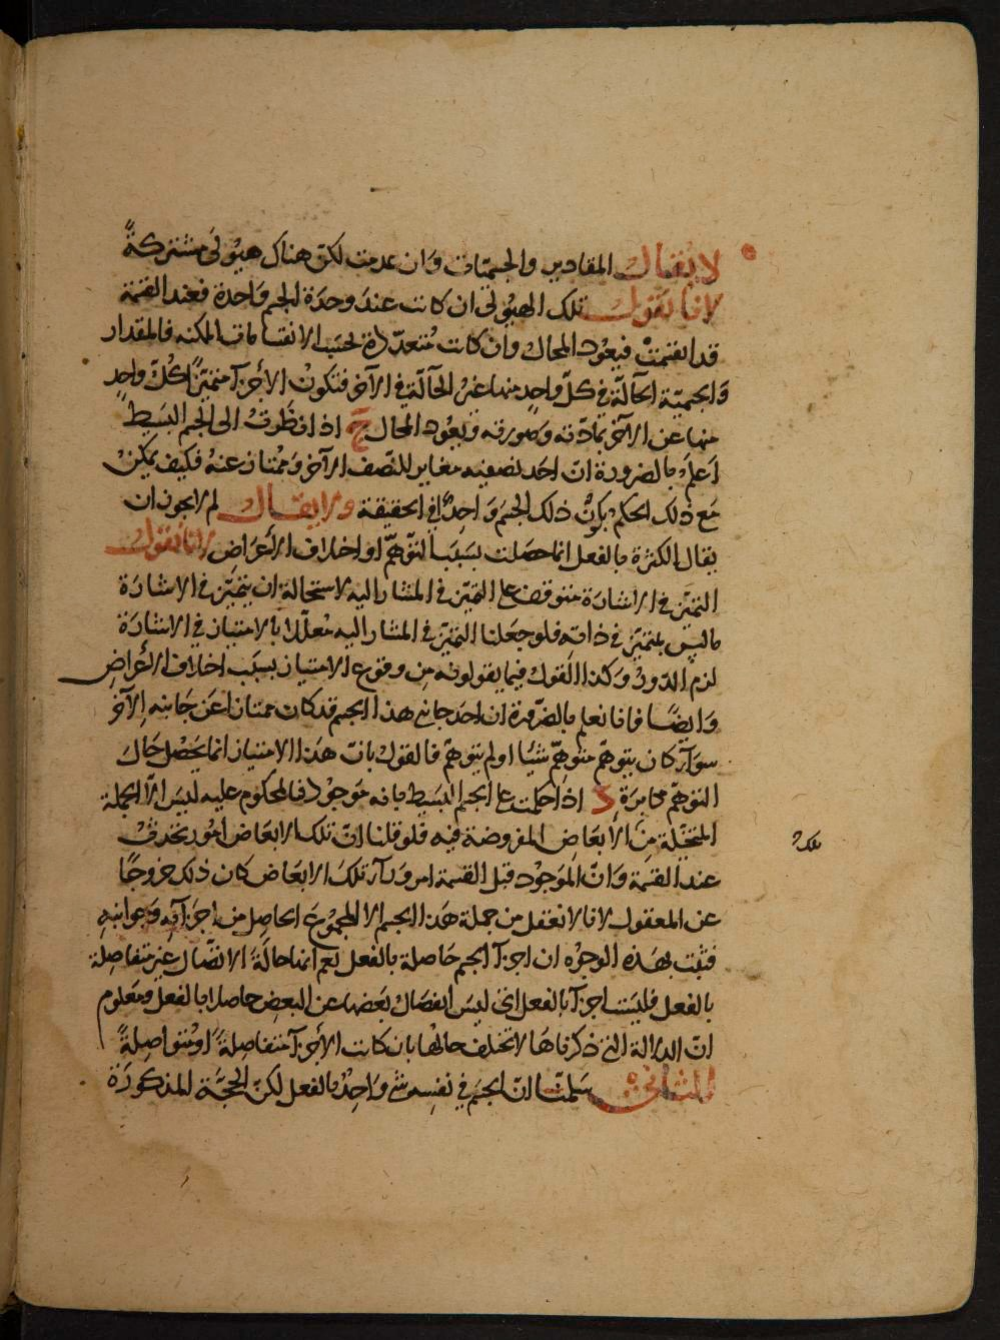 لا يقال المقادير والجسميّات وان عدمت لكن هناك هيولى مشتركةً
لانا نقول تلك الهيولي ان كانت عند وحدة الجسم واحدة فعند القسمة
قد انقسمت فيعود المحال وان كانت متعدّدة بحسب الانقسامات الممكنه فالمقدار
والجسميّة الحآلّة في كلّ واحدٍ منها غير الحآلّة في الآخر فتكون الأجزآ متميّزًا كلّ واحدٍ
منها عن الآخر بمادّته وصورته ويعود المحال ج اذا نظرت الى الجسم البسيط
اعلم بالضرورة انّ احد نصفيه مغاير للنّصف الآخر وممتاز عنهُ فكيف يمكن
مع ذلك الحكم بكون ذلك الجسم واحدًا في الحقيقة ولا يقال لم لا يجوز ان
يقال الكثرة بالفعل انما حصلت بسبب التوهّم او اختلاف الاعراض لانا نقول
التميّز في الاشارة متوقف على التميّز في المشار اليه لاستحالة ان يتميّز في الاشارة
ما ليس بمتميّز في ذاته فلو جعلنا التميّز في المشار اليه معلّلا بالامتياز في الاشارة
لزم الدّور وكذا القول فيما يقولونه من وقوع الامتياز بسبب اختلاف الأعراضِ
وايضًا فانا نعلم بالضّرورة ان احد جانبي هذا الجسم قد كان ممتازا عن جانبه الآخر
سوآء كان يتوهّم متوهّم شيئا او لم يتوهّم فالقول بانّ هذا الامتياز انما يحصل حال
التوهّم مكابرة د اذا حكمت على الجسم البسيط بانه موجود فالمحكوم عليه ليس الّا الجملة
المتخيّلة من الأبعاض المفروضة فيه فلو قلنا انّ تلك الابعاض امور تحدث
عند القسمة وانّ الموجود قبل القسمة امر ورآء تلك الابعاض كان ذلك خروجًا
عن المعقول لانا لا نعقل من جملة هذا الجسم الا المجموع الحاصل من اجزآيه وجوانبه
فثبت بهذه الوجوه ان اجزآ الجسم حاصلة بالفعل نعم انها حالة الاتصال غير متفاصلة
بالفعل فليست اجزآ بالفعل اي ليس انفصال بعضها عن البعض حاصلا بالفعل ومعلوم
انّ الدلالة التي ذكرناها لا تختلف حالها بان كانت الأجزآ متفاصلةً او متواصلةً
الثاني سلّمنا انّ الجسم في نفسه شي واحدٌ بالفعل لكن الحجّة المذكورة